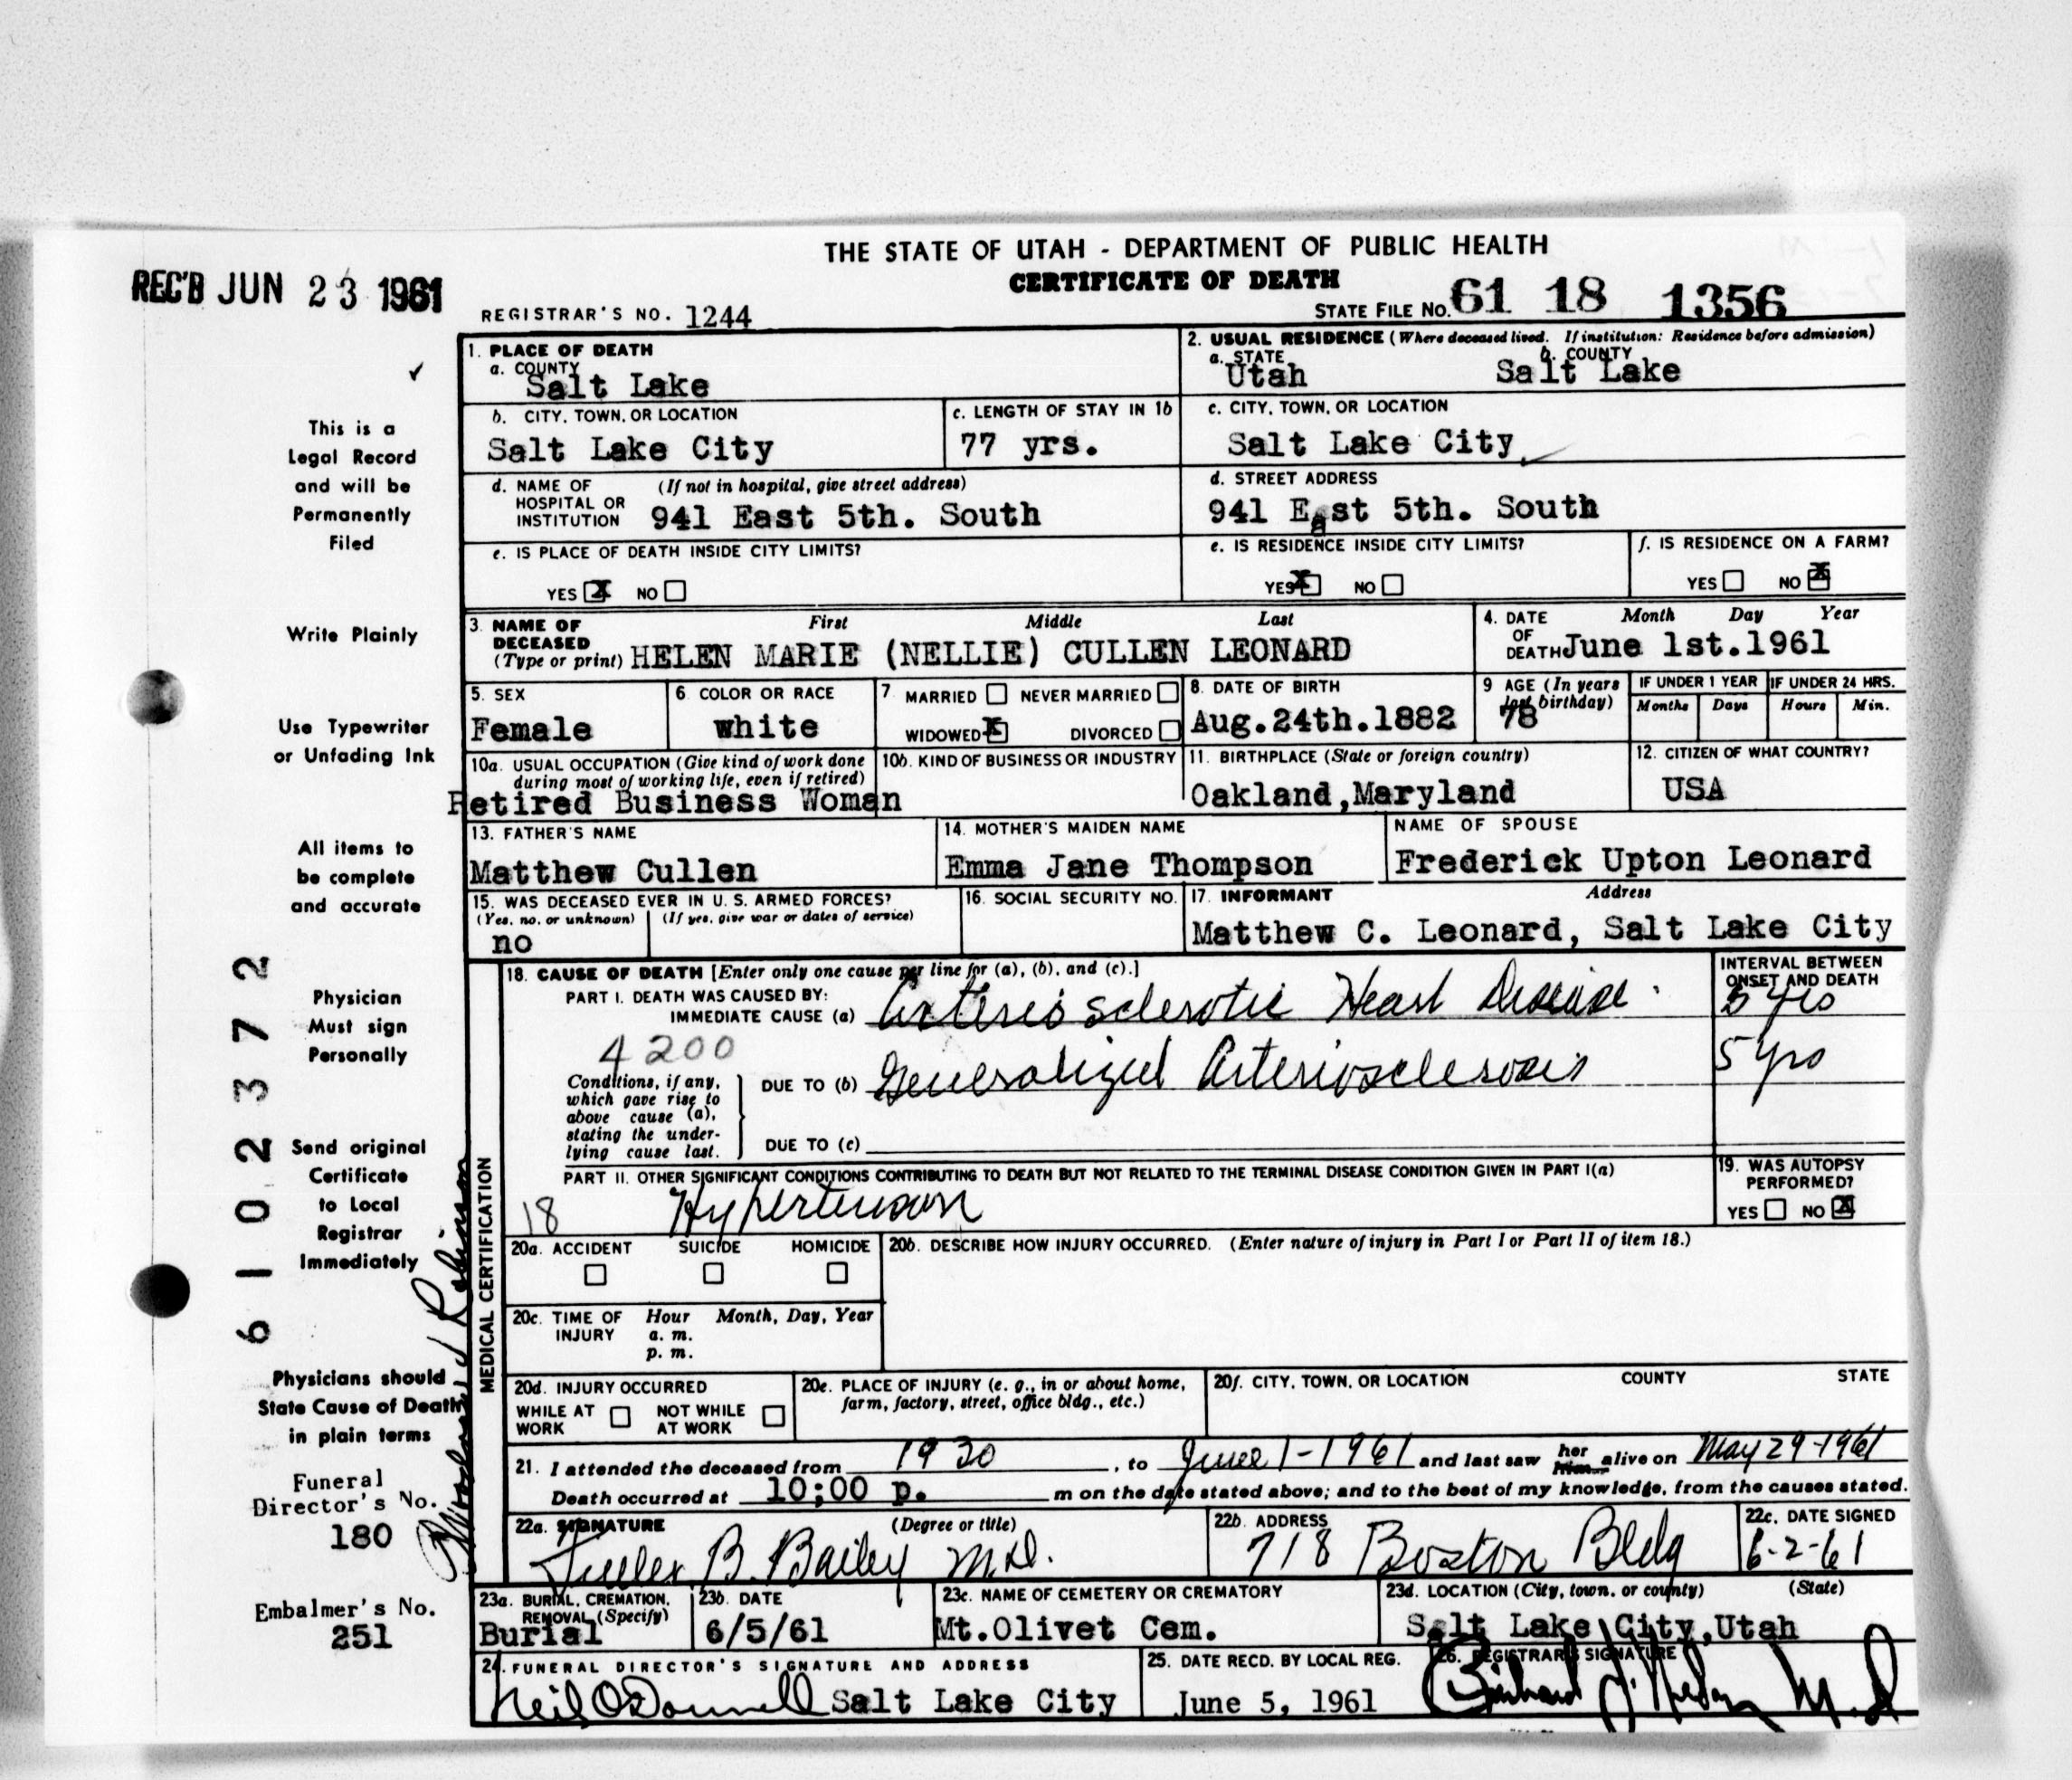 THE STATE OF UTAH - DEPARTMENT OF PUBLIC HEALTH
CERTIFICATE OF DEATH
REC'D JUN 23 1961
REGISTRAR'S NO. 1244
STATE FILE NO. 61 18 1356
1. PLACE OF DEATH
a. COUNTY
Salt Lake
2. USUAL RESIDENCE (Where deceased lived. If institution: Residence before admission)
a. STATE b. COUNTY
Utah Salt Lake
b. CITY, TOWN, OR LOCATION
Salt Lake City
c. LENGTH OF STAY IN 1b
77 yrs.
c. CITY, TOWN, OR LOCATION
Salt Lake City
d. NAME OF HOSPITAL OR INSTITUTION (If not in hospital, give street address)
941 East 5th. South
d. STREET ADDRESS
941 East 5th. South
e. IS PLACE OF DEATH INSIDE CITY LIMITS?
YES X NO
e. IS RESIDENCE INSIDE CITY LIMITS?
YES X NO
f. IS RESIDENCE ON A FARM?
YES NO X
3. NAME OF DECEASED (Type or print)
First Middle Last
HELEN MARIE (NELLIE) CULLEN LEONARD
4. DATE OF DEATH Month Day Year
June 1st.1961
5. SEX
Female
6. COLOR OR RACE
white
7. MARRIED NEVER MARRIED
WIDOWED X DIVORCED
8. DATE OF BIRTH
Aug.24th.1882
9 AGE (In years last birthday)
78
IF UNDER 1 YEAR
Months Days
IF UNDER 24 HRS.
Hours Min.
10a. USUAL OCCUPATION (Give kind of work done during most of working life, even if retired)
Retired Business Woman
10b. KIND OF BUSINESS OR INDUSTRY
11. BIRTHPLACE (State or foreign country)
Oakland,Maryland
12. CITIZEN OF WHAT COUNTRY?
USA
13. FATHER'S NAME
Matthew Cullen
14. MOTHER'S MAIDEN NAME
Emma Jane Thompson
NAME OF SPOUSE
Frederick Upton Leonard
15. WAS DECEASED EVER IN U. S. ARMED FORCES?
(Yes, no, or unknown) (If yes, give war or dates of service)
no
16. SOCIAL SECURITY NO.
17. INFORMANT Address
Matthew C. Leonard, Salt Lake City
MEDICAL CERTIFICATION
18. CAUSE OF DEATH [Enter only one cause per line for (a), (b), and (c).]
INTERVAL BETWEEN ONSET AND DEATH
PART I. DEATH WAS CAUSED BY:
IMMEDIATE CAUSE (a) Arteriosclerotic Heart Disease. 5 yrs
4200
Conditions, if any, which gave rise to above cause (a), stating the underlying cause last.
DUE TO (b) Generalized Arteriosclerosis 5 yrs
DUE TO (c)
PART II. OTHER SIGNIFICANT CONDITIONS CONTRIBUTING TO DEATH BUT NOT RELATED TO THE TERMINAL DISEASE CONDITION GIVEN IN PART I(a)
18 Hypertension
19. WAS AUTOPSY PERFORMED?
YES NO X
20a. ACCIDENT SUICIDE HOMICIDE
20b. DESCRIBE HOW INJURY OCCURRED. (Enter nature of injury in Part I or Part II of item 18.)
20c. TIME OF INJURY Hour Month, Day, Year
a. m.
p. m.
20d. INJURY OCCURRED
WHILE AT WORK NOT WHILE AT WORK
20e. PLACE OF INJURY (e. g., in or about home, farm, factory, street, office bldg., etc.)
20f. CITY, TOWN, OR LOCATION COUNTY STATE
21. I attended the deceased from 1930, to June 1-1961 and last saw her him alive on May 29-1961
Death occurred at 10;00 p. m on the date stated above; and to the best of my knowledge, from the causes stated.
22a. SIGNATURE (Degree or title)
Fuller B. Bailey M.D.
22b. ADDRESS
718 Boston Bldg
22c. DATE SIGNED
6-2-61
23a. BURIAL, CREMATION, REMOVAL (Specify)
Burial
23b. DATE
6/5/61
23c. NAME OF CEMETERY OR CREMATORY
Mt.Olivet Cem.
23d. LOCATION (City, town, or county) (State)
Salt Lake City,Utah
24. FUNERAL DIRECTOR'S SIGNATURE AND ADDRESS
Neil O'Donnell Salt Lake City
25. DATE RECD. BY LOCAL REG.
June 5, 1961
26. REGISTRAR'S SIGNATURE
M.D
This is a
Legal Record
and will be
Permanently
Filed
Write Plainly
Use Typewriter
or Unfading Ink
All items to
be complete
and accurate
Physician
Must sign
Personally
Send original
Certificate
to Local
Registrar
Immediately
Physicians should
State Cause of Death
in plain terms
Funeral
Director's No.
180
Embalmer's No.
251
6102372